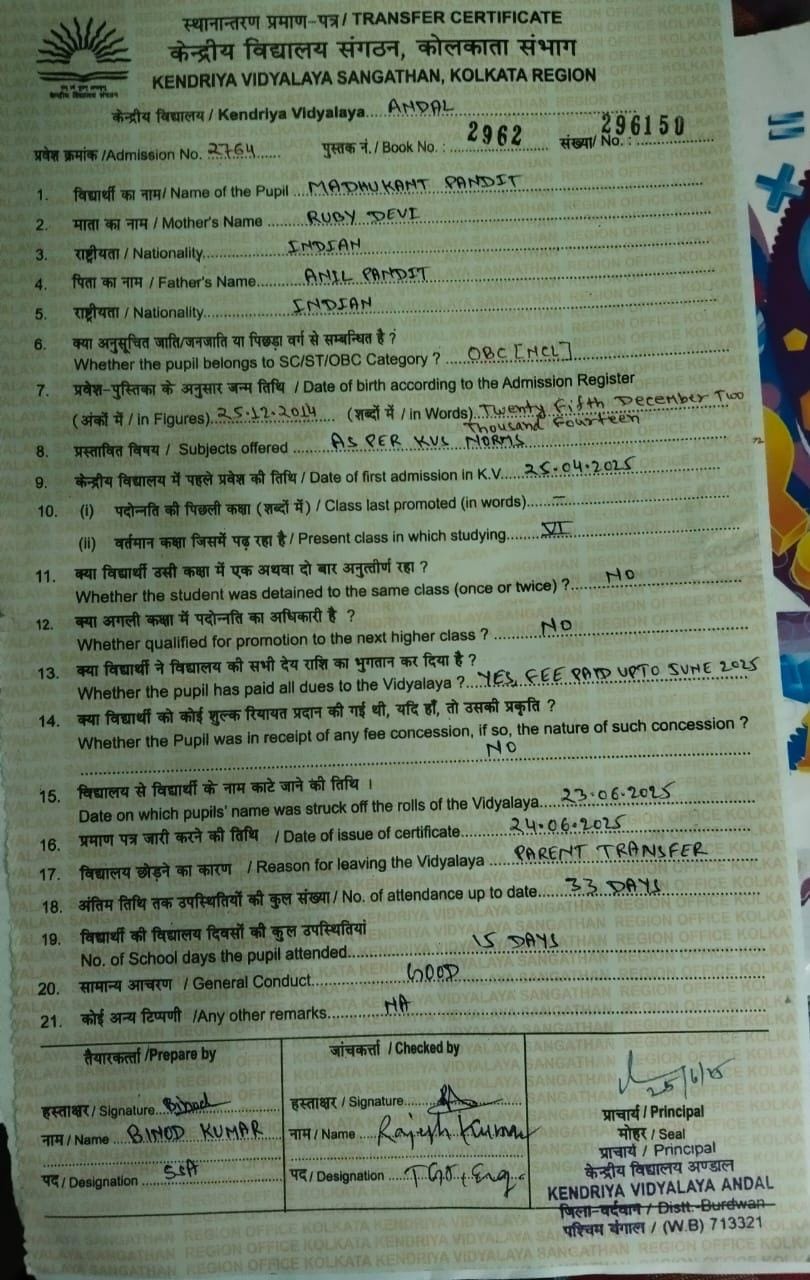 स्थानान्तरण प्रमाण-पत्र / TRANSFER CERTIFICATE
केन्द्रीय विद्यालय संगठन, कोलकाता संभाग
KENDRIYA VIDYALAYA SANGATHAN, KOLKATA REGION
केन्द्रीय विद्यालय / Kendriya Vidyalaya....ANDAL
प्रवेश क्रमांक /Admission No. 2764 पुस्तक नं. / Book No. : 2962 संख्या/ No. : 296150
1. विद्यार्थी का नाम/ Name of the Pupil ...MADHUKANT PANDIT
2. माता का नाम / Mother's Name ........RUBY DEVI
3. राष्ट्रीयता / Nationality............INDIAN
4. पिता का नाम / Father's Name.........ANIL PANDIT
5. राष्ट्रीयता / Nationality............INDIAN
6. क्या अनुसूचित जाति/जनजाति या पिछड़ा वर्ग से सम्बन्धित है ?
Whether the pupil belongs to SC/ST/OBC Category ? ....OBC [NCL]
7. प्रवेश-पुस्तिका के अनुसार जन्म तिथि / Date of birth according to the Admission Register
(अंकों में / in Figures) 25.12.2014 (शब्दों में / in Words) Twenty Fifth December Two
Thousand Fourteen
8. प्रस्तावित विषय / Subjects offered ......AS PER KVS NORMS
9. केन्द्रीय विद्यालय में पहले प्रवेश की तिथि / Date of first admission in K.V....25.04.2025
10. (i) पदोन्नति की पिछली कक्षा (शब्दों में) / Class last promoted (in words)..... –
(ii) वर्तमान कक्षा जिसमें पढ़ रहा है / Present class in which studying.......VI
11. क्या विद्यार्थी उसी कक्षा में एक अथवा दो बार अनुत्तीर्ण रहा ?
Whether the student was detained to the same class (once or twice) ?.......NO
12. क्या अगली कक्षा में पदोन्नति का अधिकारी है ?
Whether qualified for promotion to the next higher class ? ..........NO
13. क्या विद्यार्थी ने विद्यालय की सभी देय राशि का भुगतान कर दिया है ?
Whether the pupil has paid all dues to the Vidyalaya ?...YES, FEE PAID UPTO JUNE 2025
14. क्या विद्यार्थी को कोई शुल्क रियायत प्रदान की गई थी, यदि हाँ, तो उसकी प्रकृति ?
Whether the Pupil was in receipt of any fee concession, if so, the nature of such concession ?
NO
15. विद्यालय से विद्यार्थी के नाम काटे जाने की तिथि ।
Date on which pupils' name was struck off the rolls of the Vidyalaya....23.06.2025
16. प्रमाण पत्र जारी करने की तिथि / Date of issue of certificate..........24.06.2025
17. विद्यालय छोड़ने का कारण / Reason for leaving the Vidyalaya .....PARENT TRANSFER
18. अंतिम तिथि तक उपस्थितियों की कुल संख्या / No. of attendance up to date.....33 DAYS
19. विद्यार्थी की विद्यालय दिवसों की कुल उपस्थितियां
No. of School days the pupil attended..................15 DAYS
20. सामान्य आचरण / General Conduct..................GOOD
21. कोई अन्य टिप्पणी /Any other remarks...........NA
तैयारकर्त्ता /Prepare by जांचकर्त्ता / Checked by
हस्ताक्षर / Signature..Binod हस्ताक्षर / Signature
25/6/25
प्राचार्य / Principal
नाम / Name ..BINOD KUMAR नाम / Name ..Rajesh Kumar मोहर / Seal
पद / Designation ....SSA पद / Designation ...TGT, Eng.
प्राचार्य / Principal
केन्द्रीय विद्यालय अण्डाल
KENDRIYA VIDYALAYA ANDAL
जिला-वर्दवान / Distt.-Burdwan
पश्चिम बंगाल / (W.B) 713321